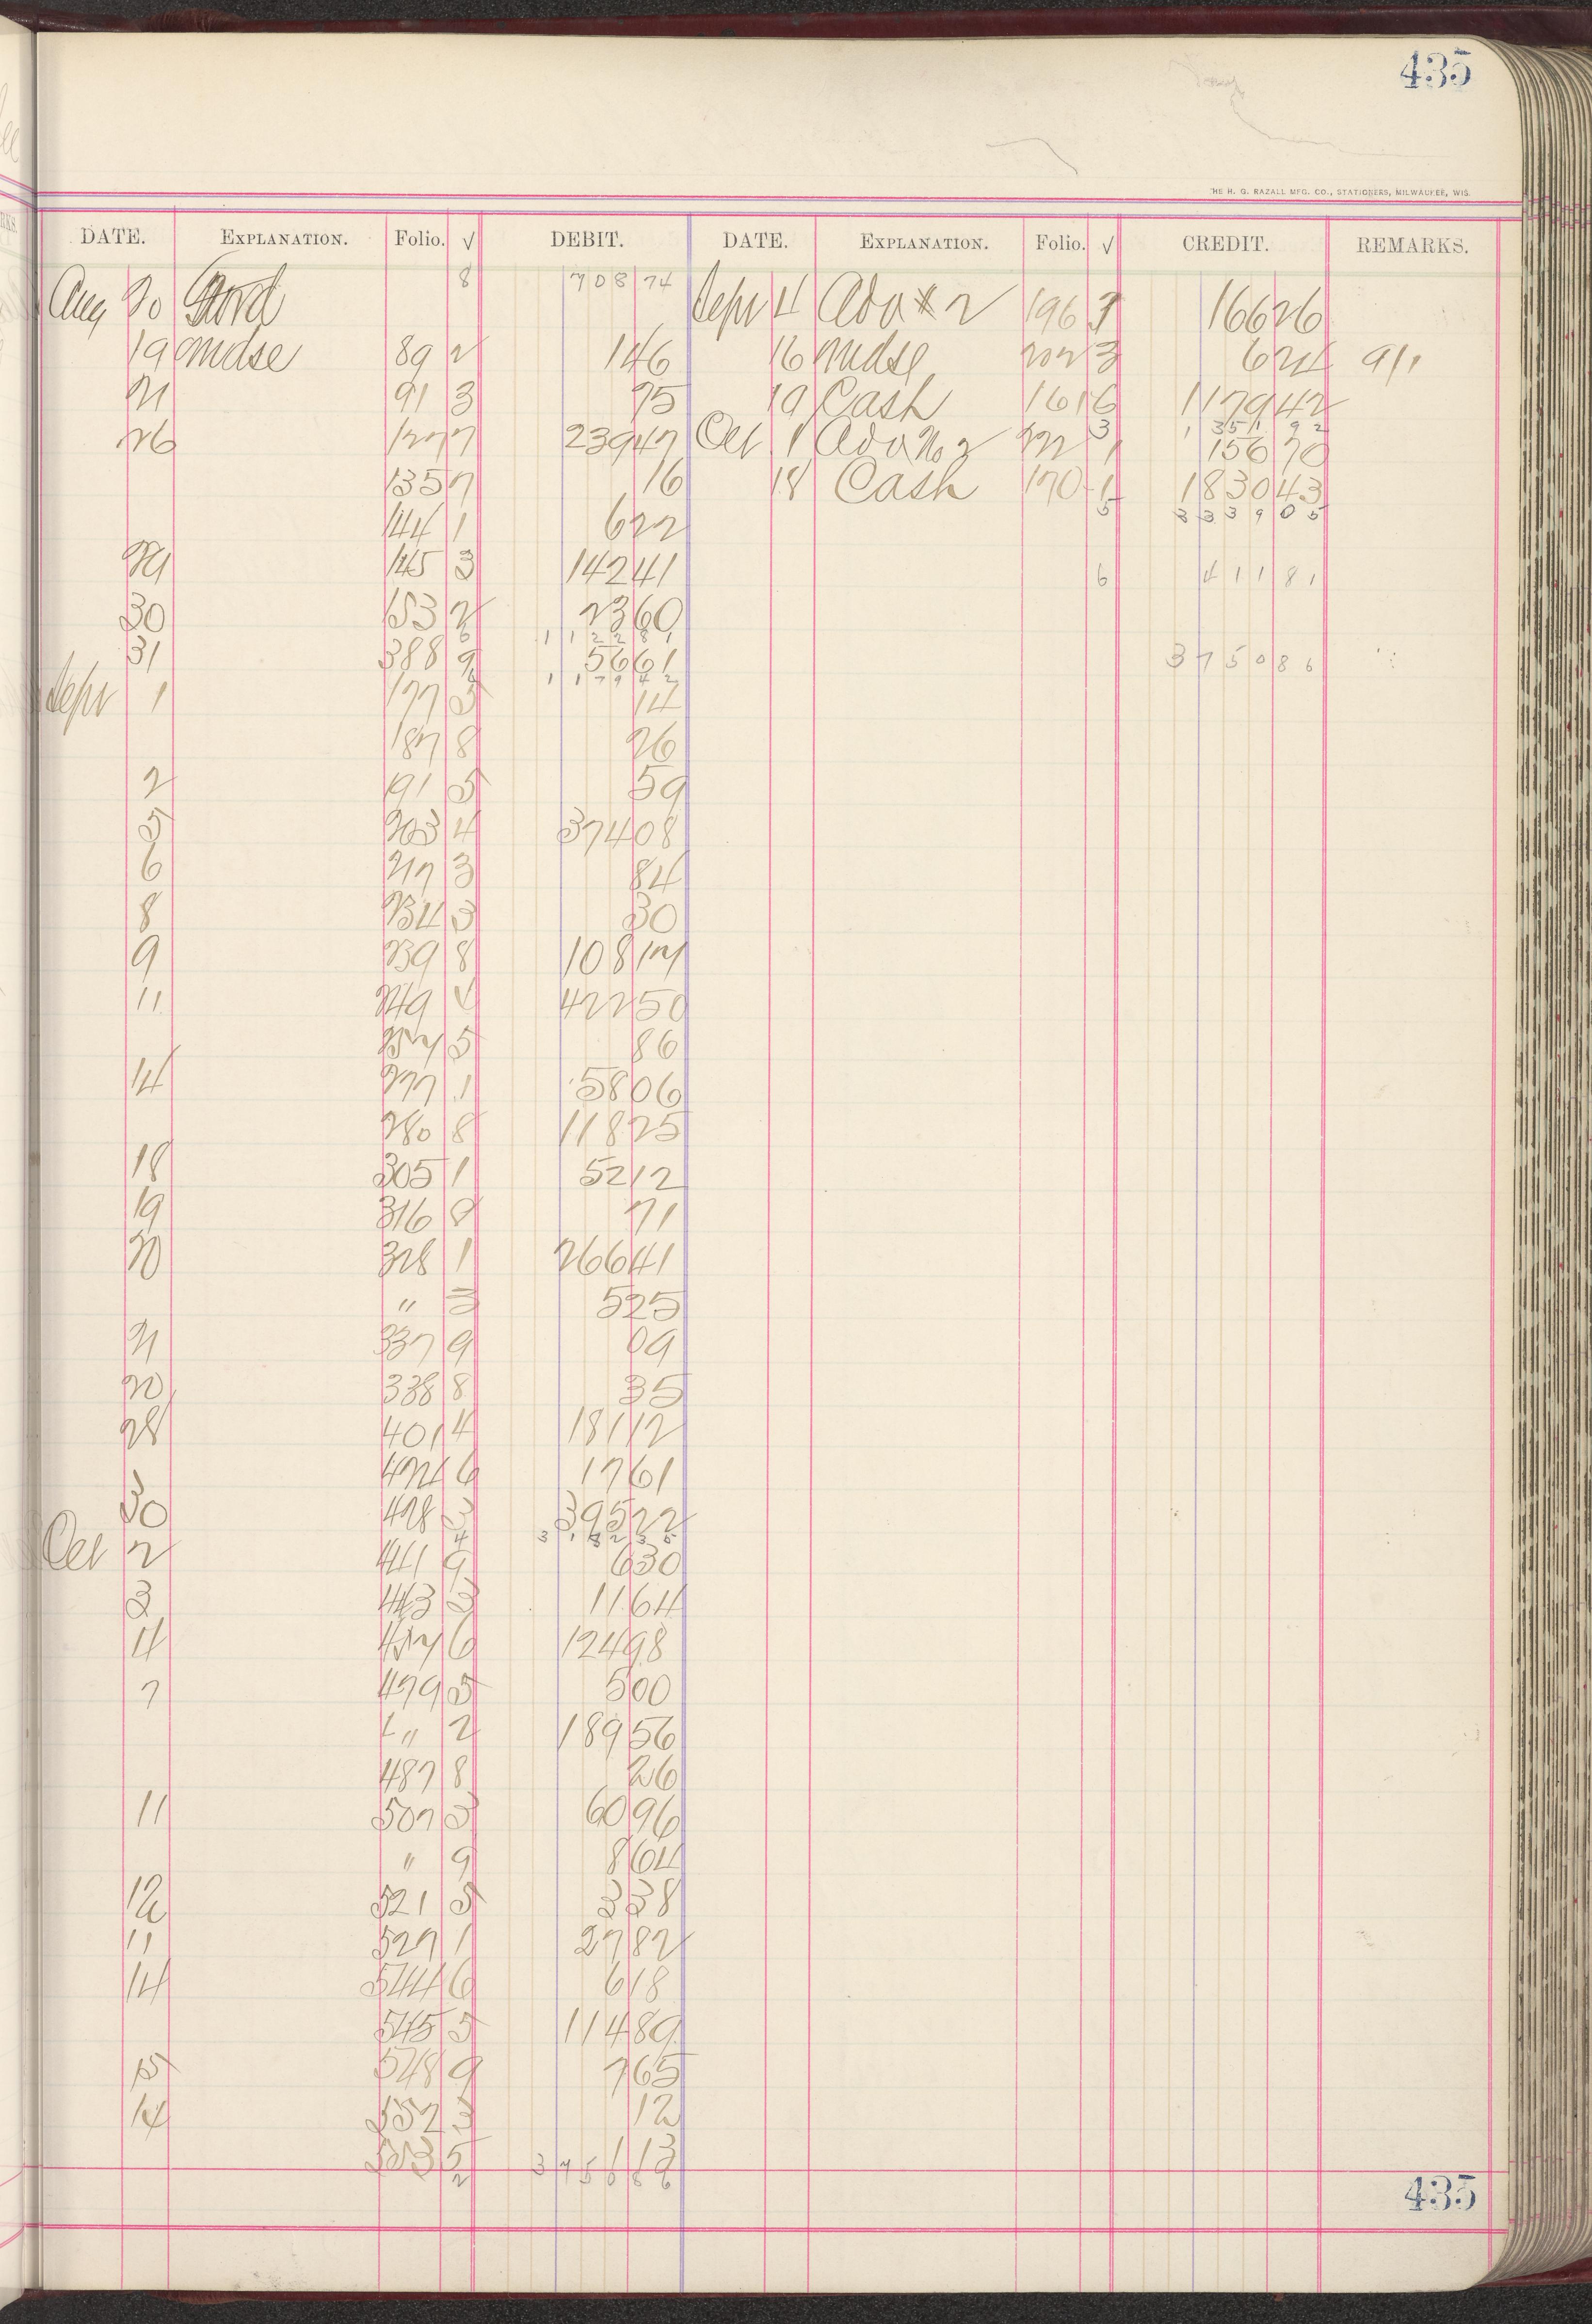 435
THE H. G. RAZALL MFG. CO., STATIONERS, MILWAUKEE, WIS.
DATE. EXPLANATION. Folio. √ DEBIT. DATE. EXPLANATION. Folio. √ CREDIT. REMARKS.
8 708 74
Aug 20 Sept 4 196 166 26
19 Mdse 89 2 1 46 16 Mdse 202 3 6 24 9/1
21 91 3 75 19 Cash 161 6 1179 42
3 1351 92
26 127 7 239 47 Oct 1 1 156 70
135 7 16 18 Cash 170 1 1830 43
5 3339 05
144 1 6 22
29 145 3 142 41 6 411 81
30 153 2 23 60
1122 81
31 388 9 56 61 3750 86
1179 42
Sept 1 177 5 14
187 8 26
2 191 5 59
5 203 4 374 08
6 217 3 84
8 234 3 30
9 239 8 108 17
11 249 422 50
257 5 86
14 277 1 58 06
280 8 118 25
18 305 1 52 12
19 316 8 71
20 328 1 266 41
" 3 5 25
21 337 9 09
22 338 8 35
28 401 4 181 12
424 6 17 61
30 428 3 395 22
4
Oct 2 441 9 6 30
3 443 3 11 64
4 457 6 124 98
7 479 5 5 00
" 2 189 56
487 8 26
11 507 3 60 96
" 9 8 64
12 521 5 3 38
11 527 1 27 82
14 544 6 6 18
545 5 114 89
15 548 9 7 65
14 552 3 12
5 1 13
2 3750 86
435